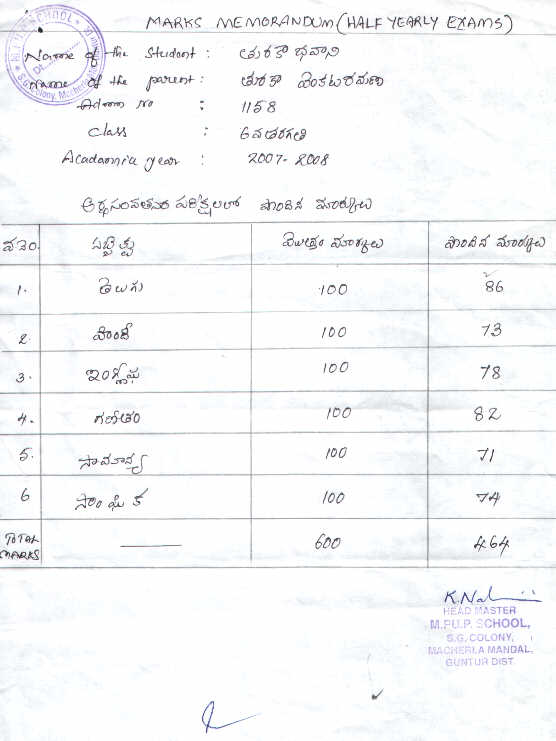 MARKS MEMORANDUM (HALF YEARLY EXAMS)
Name of the Student : తురకా భవాని
Name of the parent : తురకా వెంకటరమణ
Admn No : 1158
Class : 6వతరగతి
Acadamic year : 2007-2008
అర్ధసంవత్సర పరీక్షలలో పొందిన మార్కులు
వ.నెం. సబ్జెక్టు మొత్తం మార్కులు పొందిన మార్కులు
1. తెలుగు 100 86
2. హిందీ 100 73
3. ఇంగ్లీషు 100 78
4. గణితం 100 82
5. సామాన్య 100 71
6 సాంఘిక 100 74
TOTAL MARKS 600 464
HEAD MASTER
M.P.U.P. SCHOOL,
S.G. COLONY,
MACHERLA MANDAL,
GUNTUR DIST.